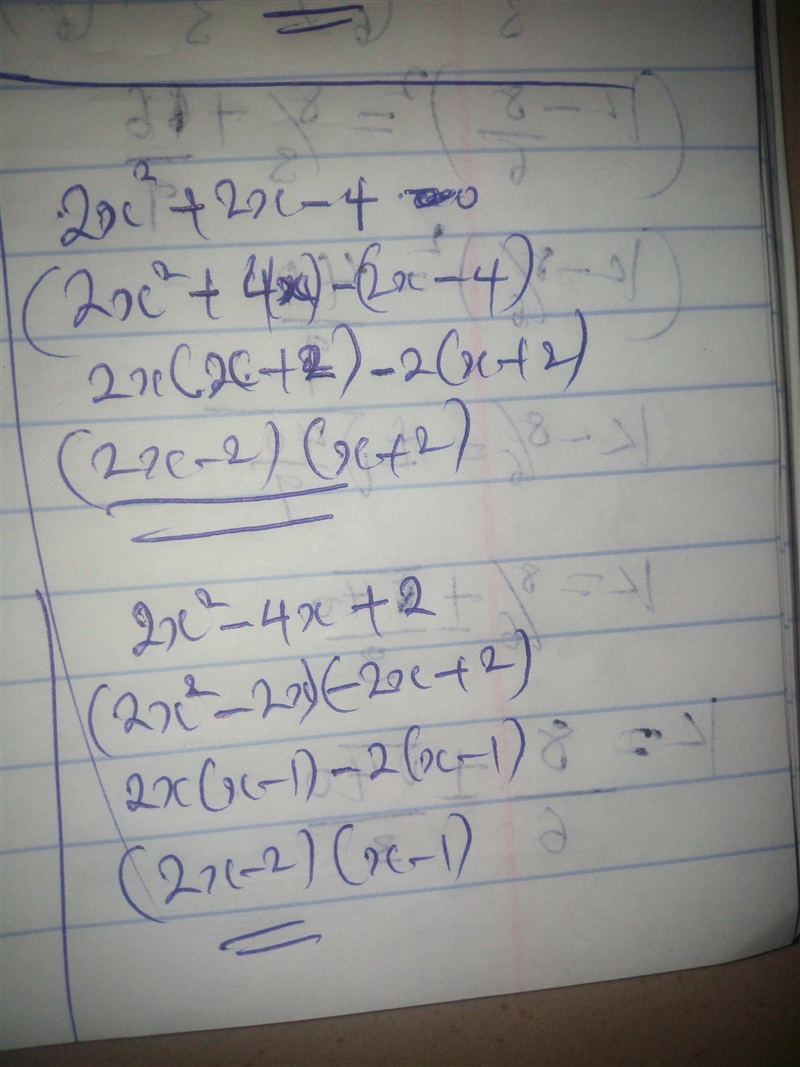 2x² + 2x - 4
(2x² + 4x) - (2x - 4)
2x(x + 2) - 2(x + 2)
(2x - 2) (x + 2)
2x² - 4x + 2
(2x² - 2x)(-2x + 2)
2x(x - 1) - 2(x - 1)
(2x - 2) (x - 1)